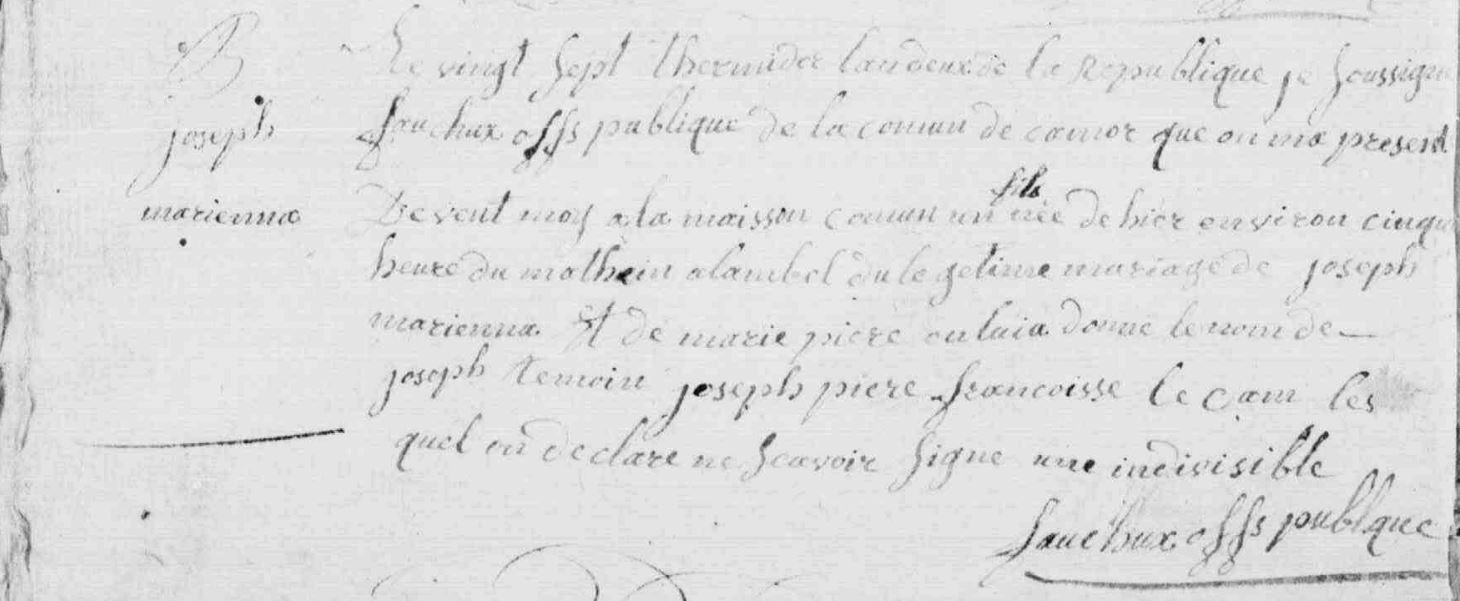 B
joseph
marienna
Le vingt sept thermidor landeux de la Republique je soussigne
fauchux offs publique de la comun de camor que on ma present
Devent moy a la maisson comun un fils née de hier environ cinque
heure du mathein alambel du legetime mariage de joseph
marienna Et de marie piere on luia donne le nom de
joseph temoin joseph piere francoisse le cam les
quel on declare ne scavoir signe une indivisible
fauchux offs publque